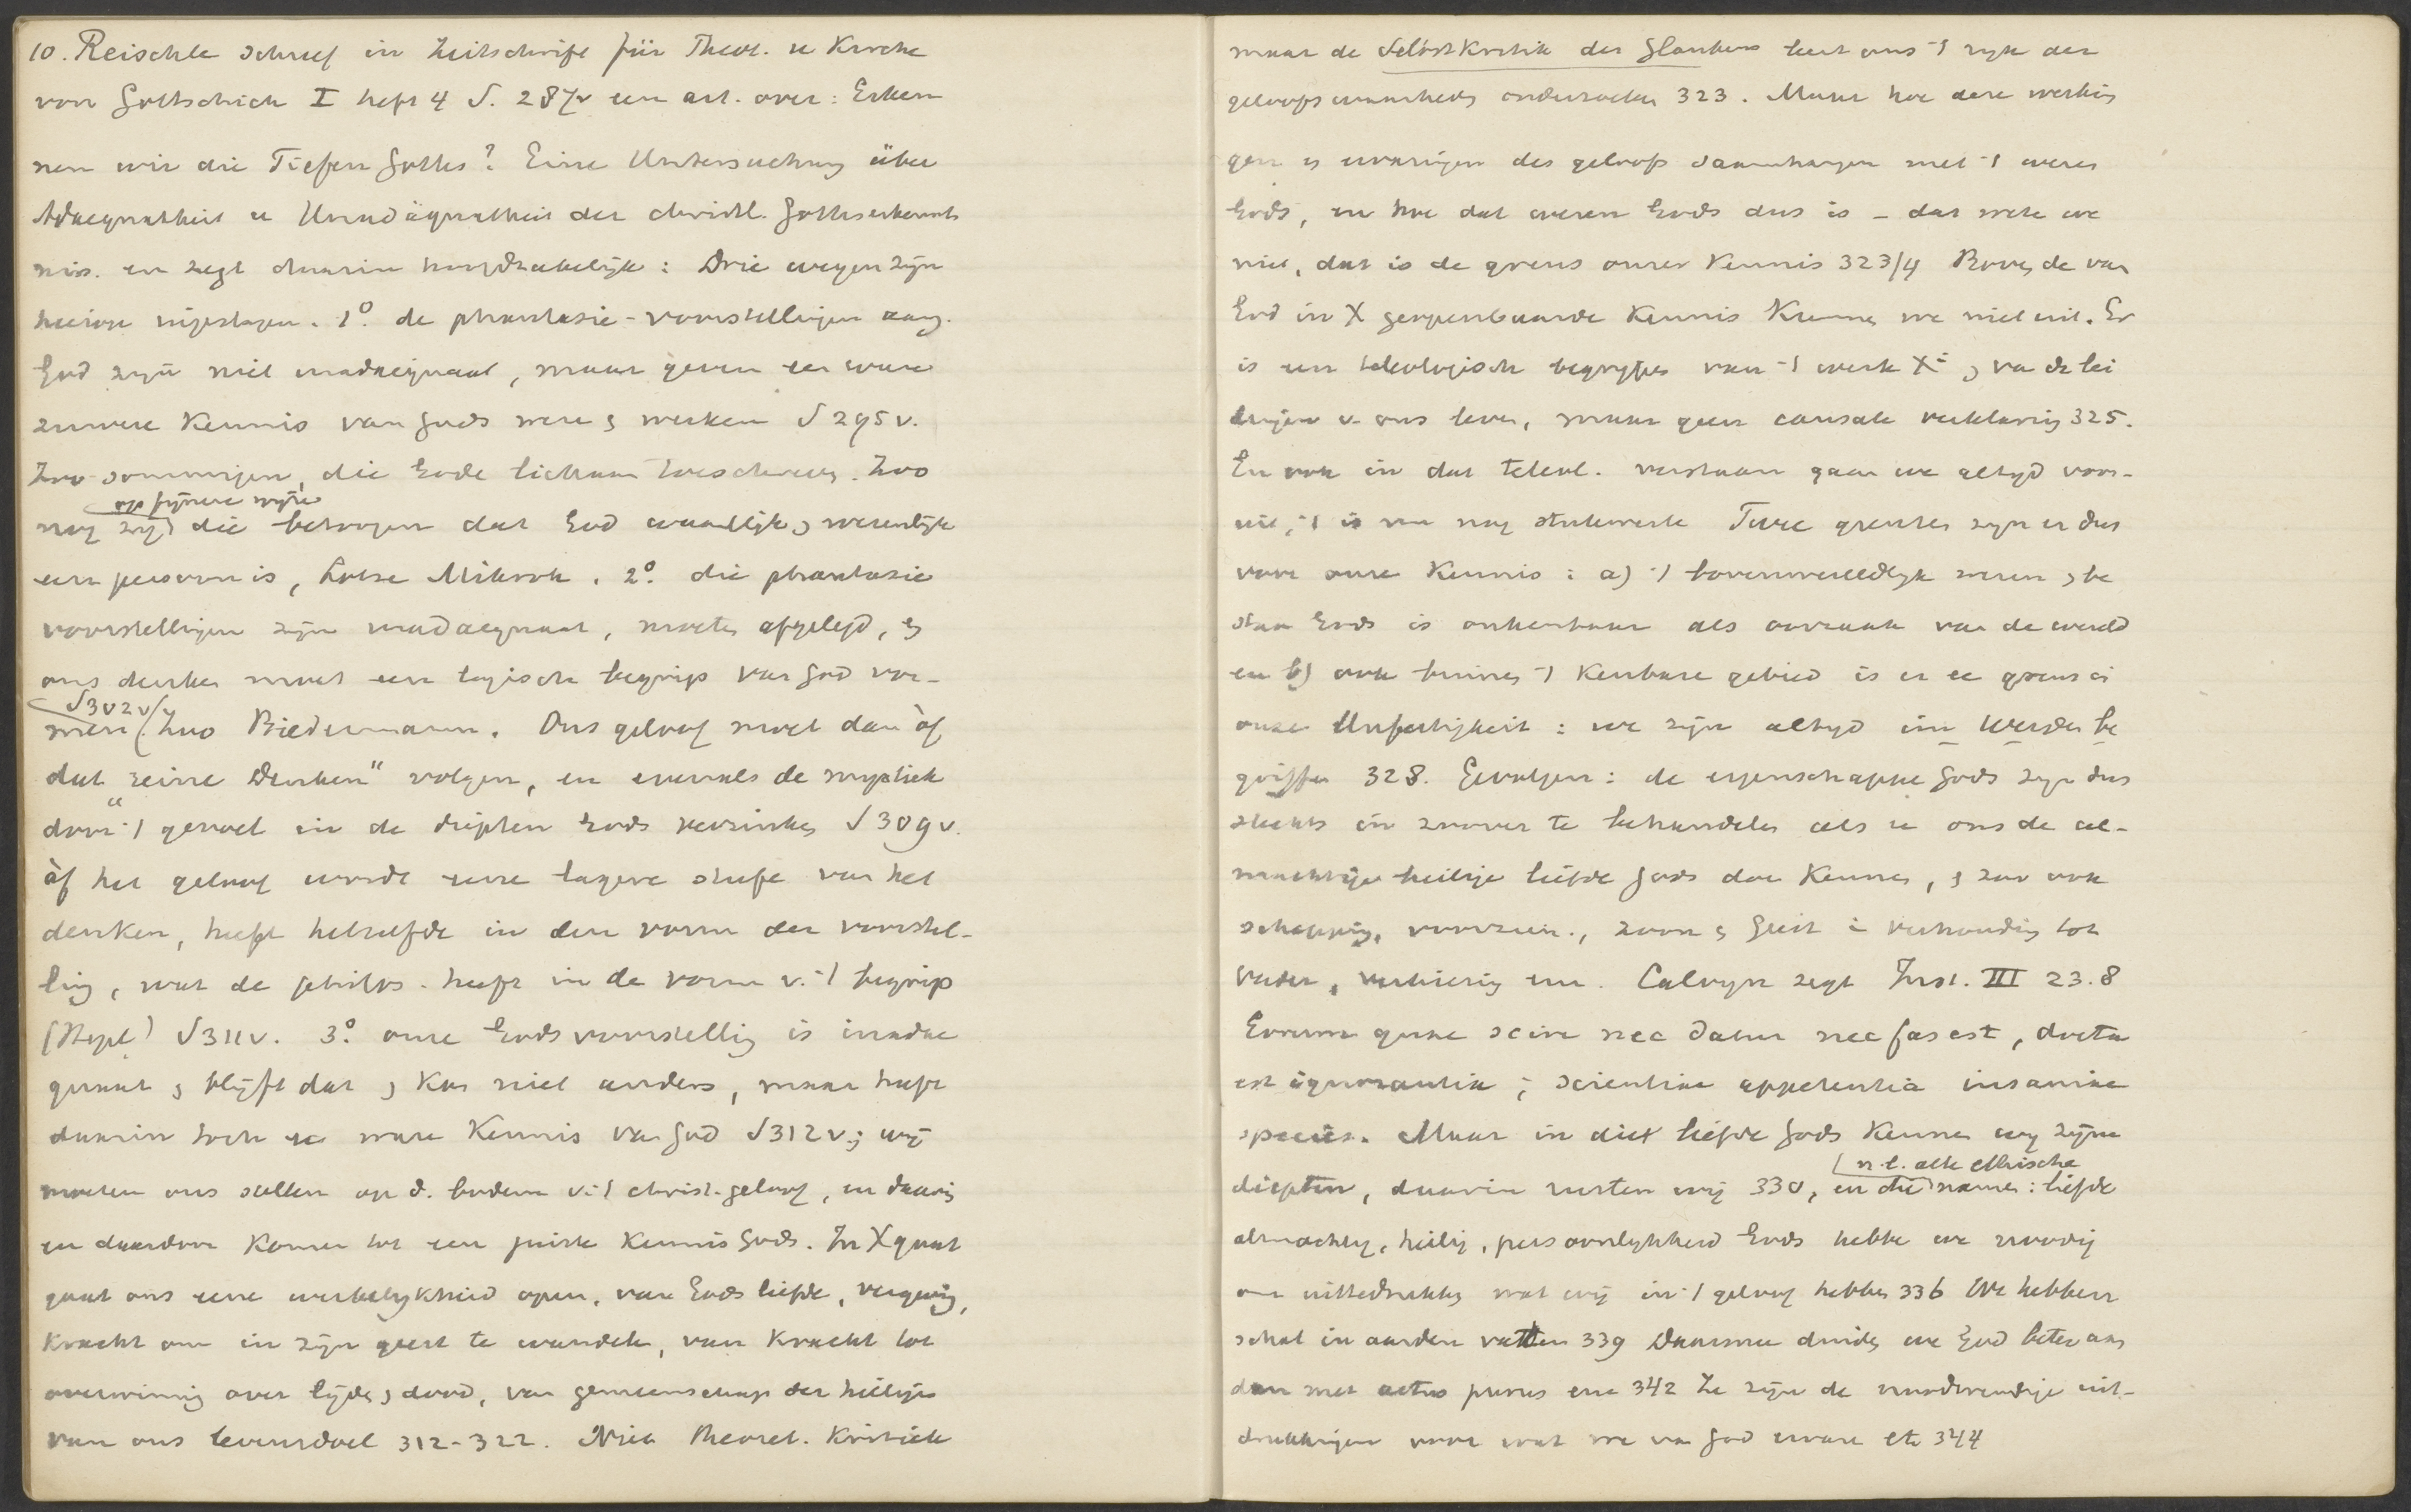 10. Reischle schreef in Zeitschrift für Theol. u Kirche
von Gottschick I heft 4 S. 287v een art. over: Erken
nen wir die Tiefen Gottes? Eine Untersuchung über
Adaequatheit u Unadäquatheit der christl. Gotteserkennt
nis. en zegt daarin hoofdzakelijk: Drie wegen zijn
hierin ingeslagen. 1º. de phantasie-voorstellingen aang.
God zijn niet inadaequaat, maar geven een ware
zuivere Kennis van Gods weze & werken S 295v.
Zoo sommigen, die Gode lichaam toeschreven. Zoo
op fijnere wijze
nog zij die betoogen dat God waarlijk & wezenlijk
een persoon is, Lotze Mikrok. 2º. die phantasie
voorstellingen zijn inadaequaat, moeten afgelegd, &
ons denken moet een logisch begrip van God vor-
S302v
men (Zoo Biedermann. Ons geloof moet dan òf
dat "reine Denken" volgen, en evenals de mystiek
door -| gevoel in de diepten Gods verzinken S 309v.
òf het geloof wordt eene lagere stufe van het
denken, heeft hetzelfde in den vorm der voorstel-
ling, wat de philos. heeft in de vorm v. -| begrip
(Hegel) S311v. 3º. onze Godsvoorstelling is inadae
quaat & blijft dat & kan niet anders, maar heeft
daarin toch ee ware Kennis van God S312v; wij
moeten ons stellen op d. bodem v. -| christ. geloof, en daarin
en daardoor komen tot een juiste Kennis Gods. In X gaat
gaat ons eene werkelijkheid open, van Gods liefde, vergeving,
Kracht om in zijn geest te wandele, van Kracht tot
overwinning over lijden & dood, van gemeenschap der heilige
van ons levensdoel 312-322. Niet theoret. Kritiek
maar de Selbstkritik des Glaubens leert ons -| rijk der
geloofswaarheden onderzoeken 323. Maar hoe deze werkin
gen & ervaringen des geloofs samenhangen met -| wezen
Gods, en hoe dat wezen Gods dus is - dat weten we
niet, dat is de grens onzer Kennis 323/4 Boven de van
God in X geopenbaarde Kennis Kunnen we niet uit. Er
is een teleologisch begrijpen van -| werk Xi & va de lei
dingen v. ons leven, maar geen causale verklaring 325.
En ook in dat teleol. verstaan gaan we altijd voor-
uit, -| is nu nog stukwerk Twee grenzen zijn er dus
voor onze Kennis: a) -| bovenwereldlijk wezen & be
staan Gods is onkenbaar als oorzaak van de wereld
en b) ook binnen -| Kenbare gebied is er ee grens i
onze Unfertigkeit: we zijn altijd im Werden be
griffen 328. Gevolgen: de eigenschappe Gods zijn dus
slechts in zoover te behandelen als ze ons de al-
machtige heilige liefde Gods doe Kennen, & zoo ook
schepping, voorzien., zoon & Geest i verhouding tot
Vader, verkiezing enz. Calvijn zegt Inst. III 23.8
Eorum quae scire nec datur nec fas est, docta
est ignorantia; scientiae appetentia insaniae
species. Maar in die liefde Gods Kennen wij zijne
n.l. alle ethische
diepten, daarin rusten wij 330, en die namen: liefde
almachtig, heilig, persoonlijkheid Gods hebbe we noodig
om uittedrukken wat wij in -| geloof hebben 336 We hebben
schat in aarden vatten 339 Daarmee duiden we God beter aan
dan met actus purus enz 342 Ze zijn de noodwendige uit-
drukkingen voor wat we van God ervare etc 344